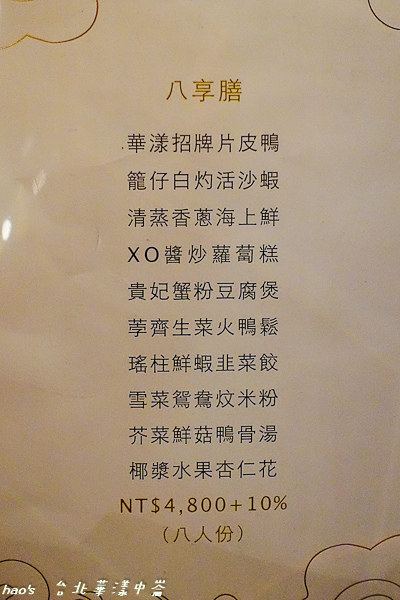 八享膳
華漾招牌片皮鴨
籠仔白灼活沙蝦
清蒸香蔥海上鮮
XO醬炒蘿蔔糕
貴妃蟹粉豆腐煲
荸齊生菜火鴨鬆
瑤柱鮮蝦韭菜餃
雪菜鴛鴦炆米粉
芥菜鮮菇鴨骨湯
椰漿水果杏仁花
NT$4,800+10%
（八人份）
hao's 台北華漾中崙